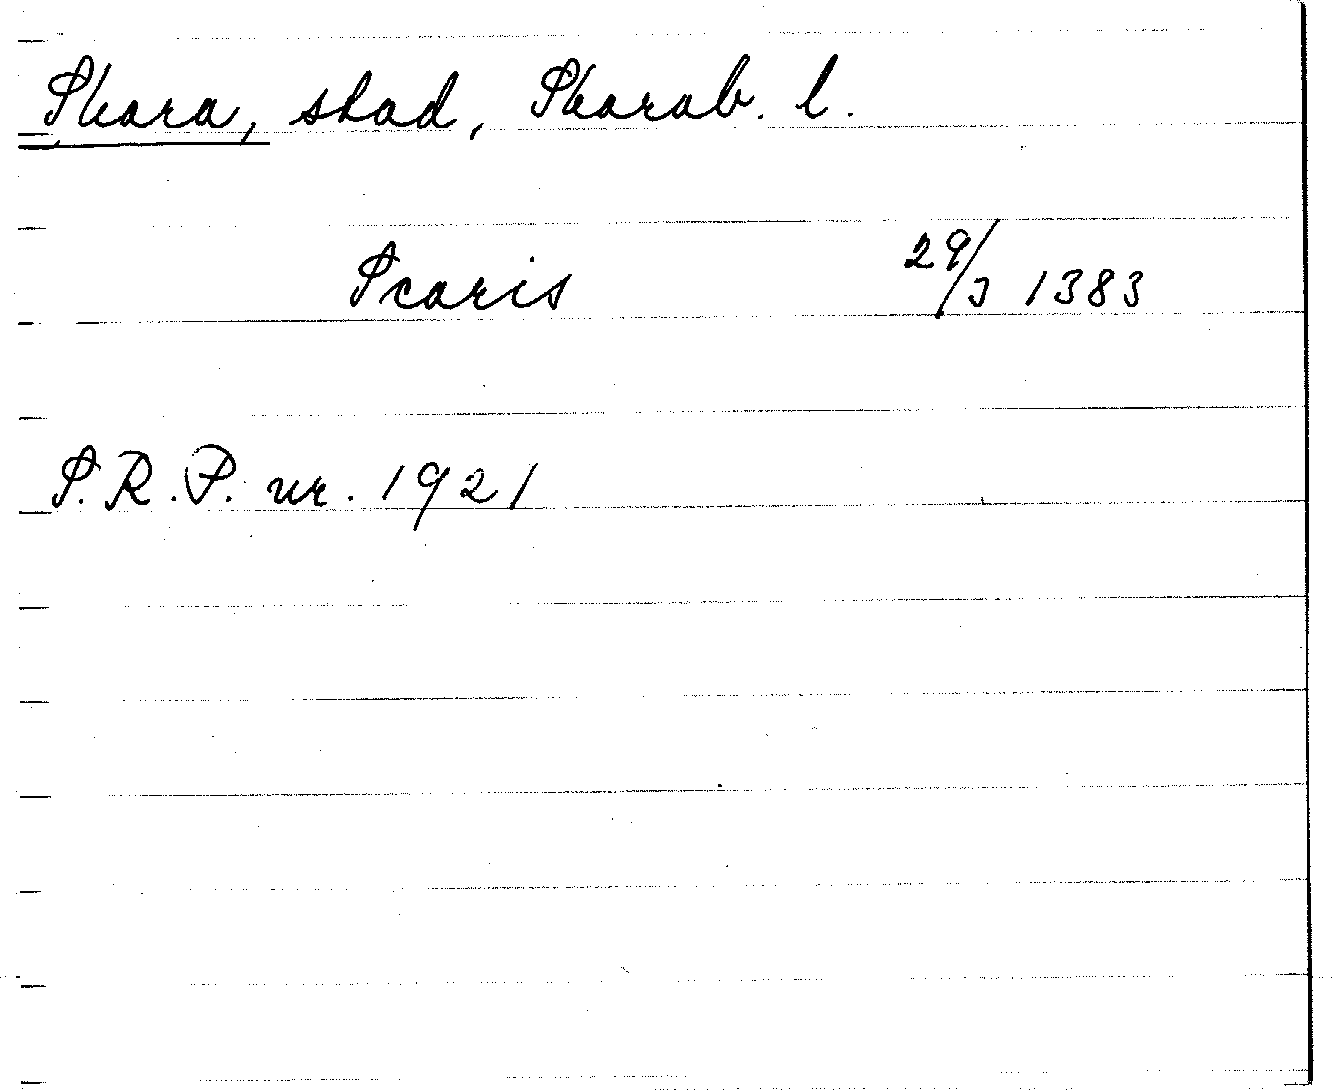 Skara, stad, Skarab. l.
Scaris 29/3 1383
S.R.P. nr. 1921